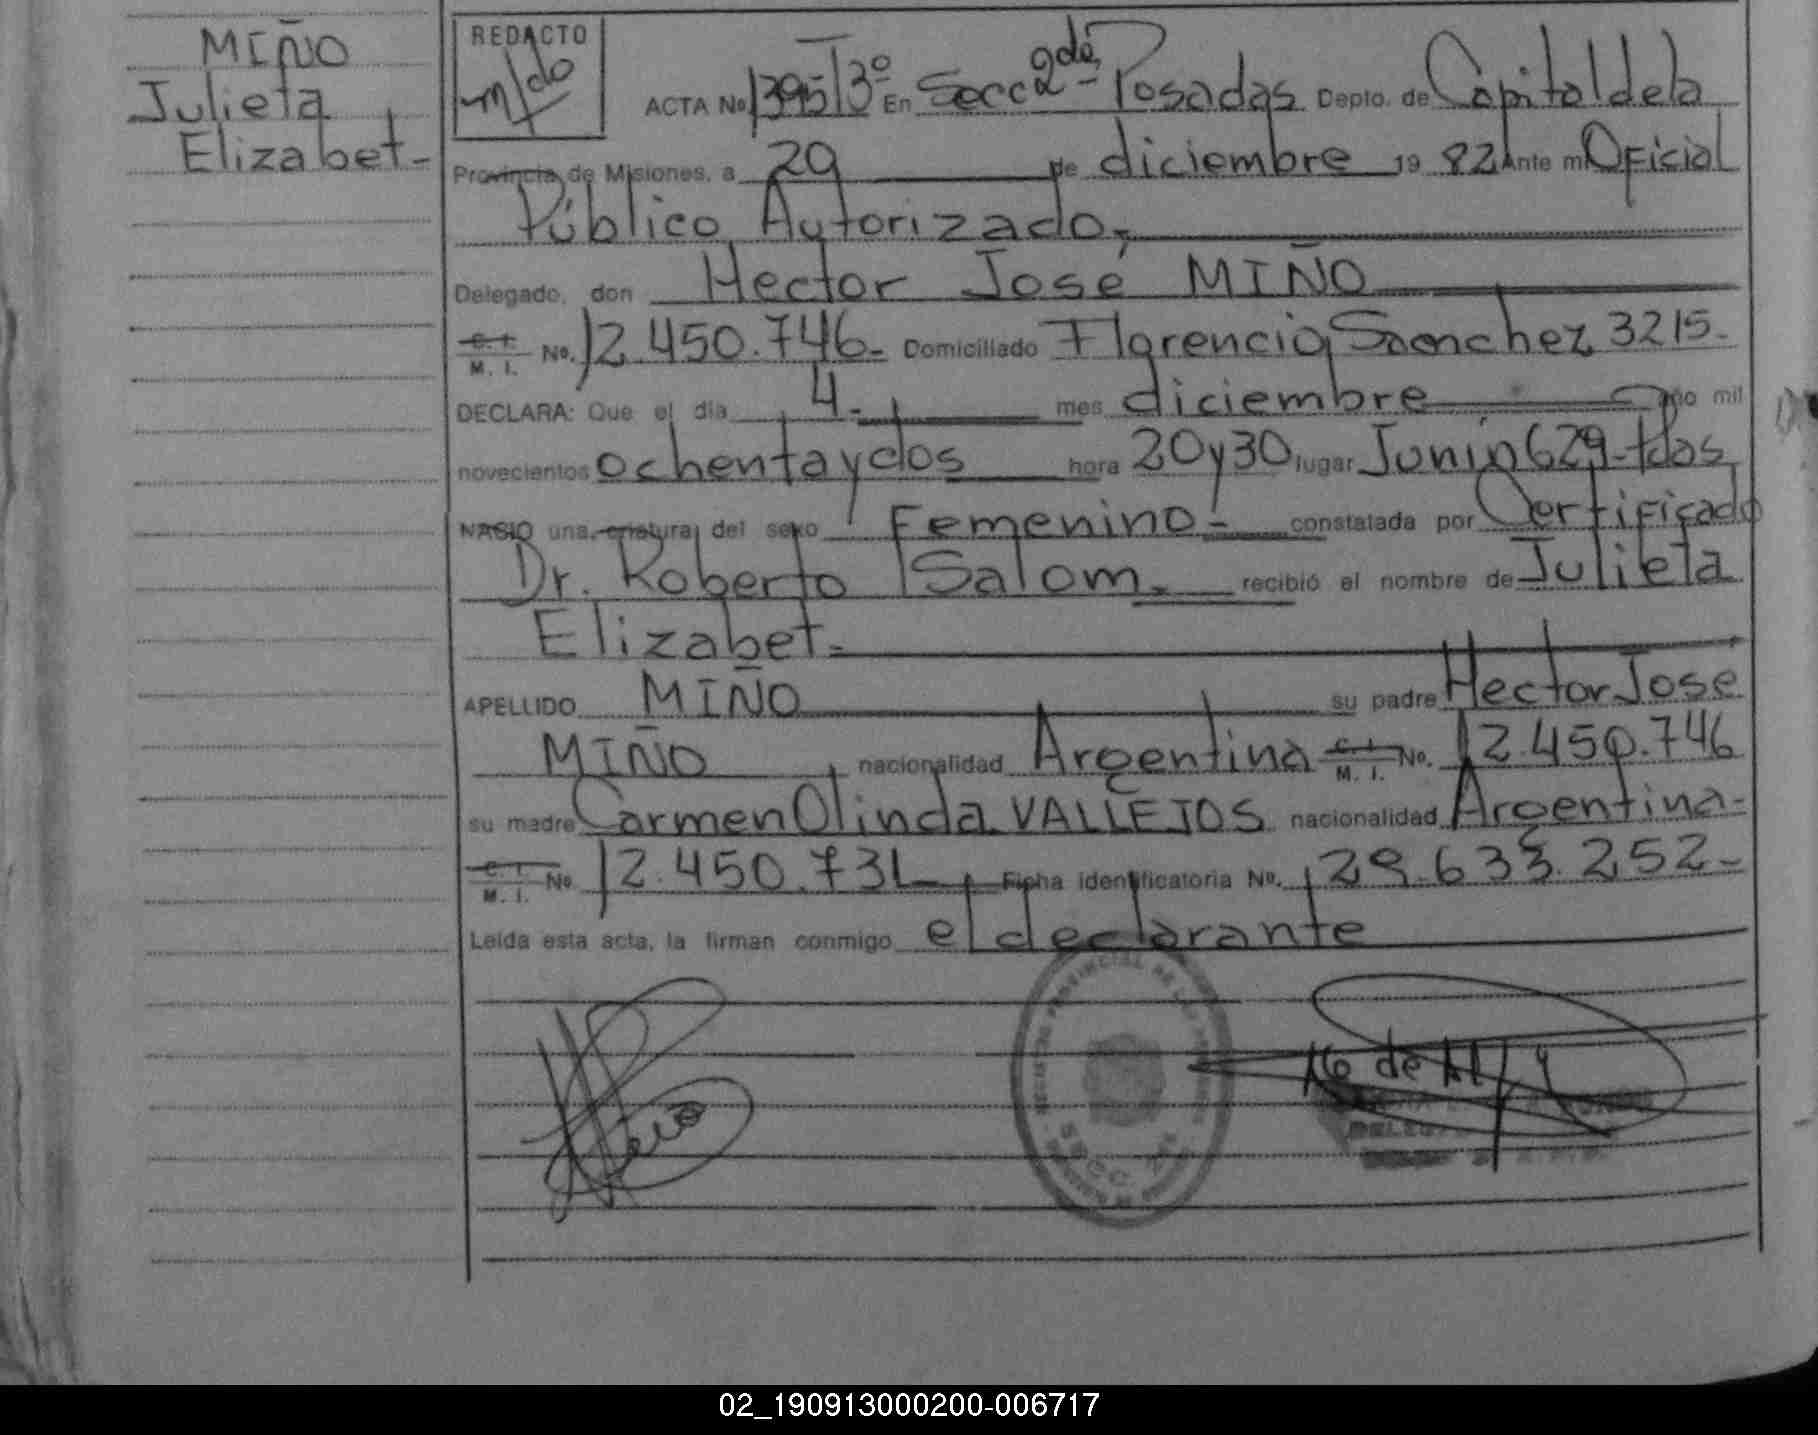 MIÑO
Julieta
Elizabet-
REDACTO
ACTA No 1395 T3º En Secc 2da- Posadas Depto. de Capital de la
Provincia de Misiones, a 29 de diciembre 19 82 Ante mi Oficial
Público Autorizado,-
Delegado, don Hector José MIÑO
C. I. M. I. No. 12.450.746- Domiciliado Florencio Sanchez 3215-
DECLARA: Que el día 4- mes diciembre año mil
novecientos ochenta y dos hora 20 y 30 lugar Junin 629-Pdas
NACIO una criatura del sexo Femenino- constatada por Certificado
Dr. Roberto Salom.- recibió el nombre de Julieta
Elizabet-
APELLIDO MIÑO su padre Hector Jose
MIÑO nacionalidad Argentina C. I. M. I. No. 12.450.746
su madre Carmen Olinda VALLEJOS nacionalidad Argentina-
C. I. M. I. No 12.450.731 Ficha identificatoria No. 29.633.252-
Leída esta acta, la firman conmigo el declarante
REGISTRO PROVINCIAL DE LAS PERSONAS
SECC.
02_190913000200-006717